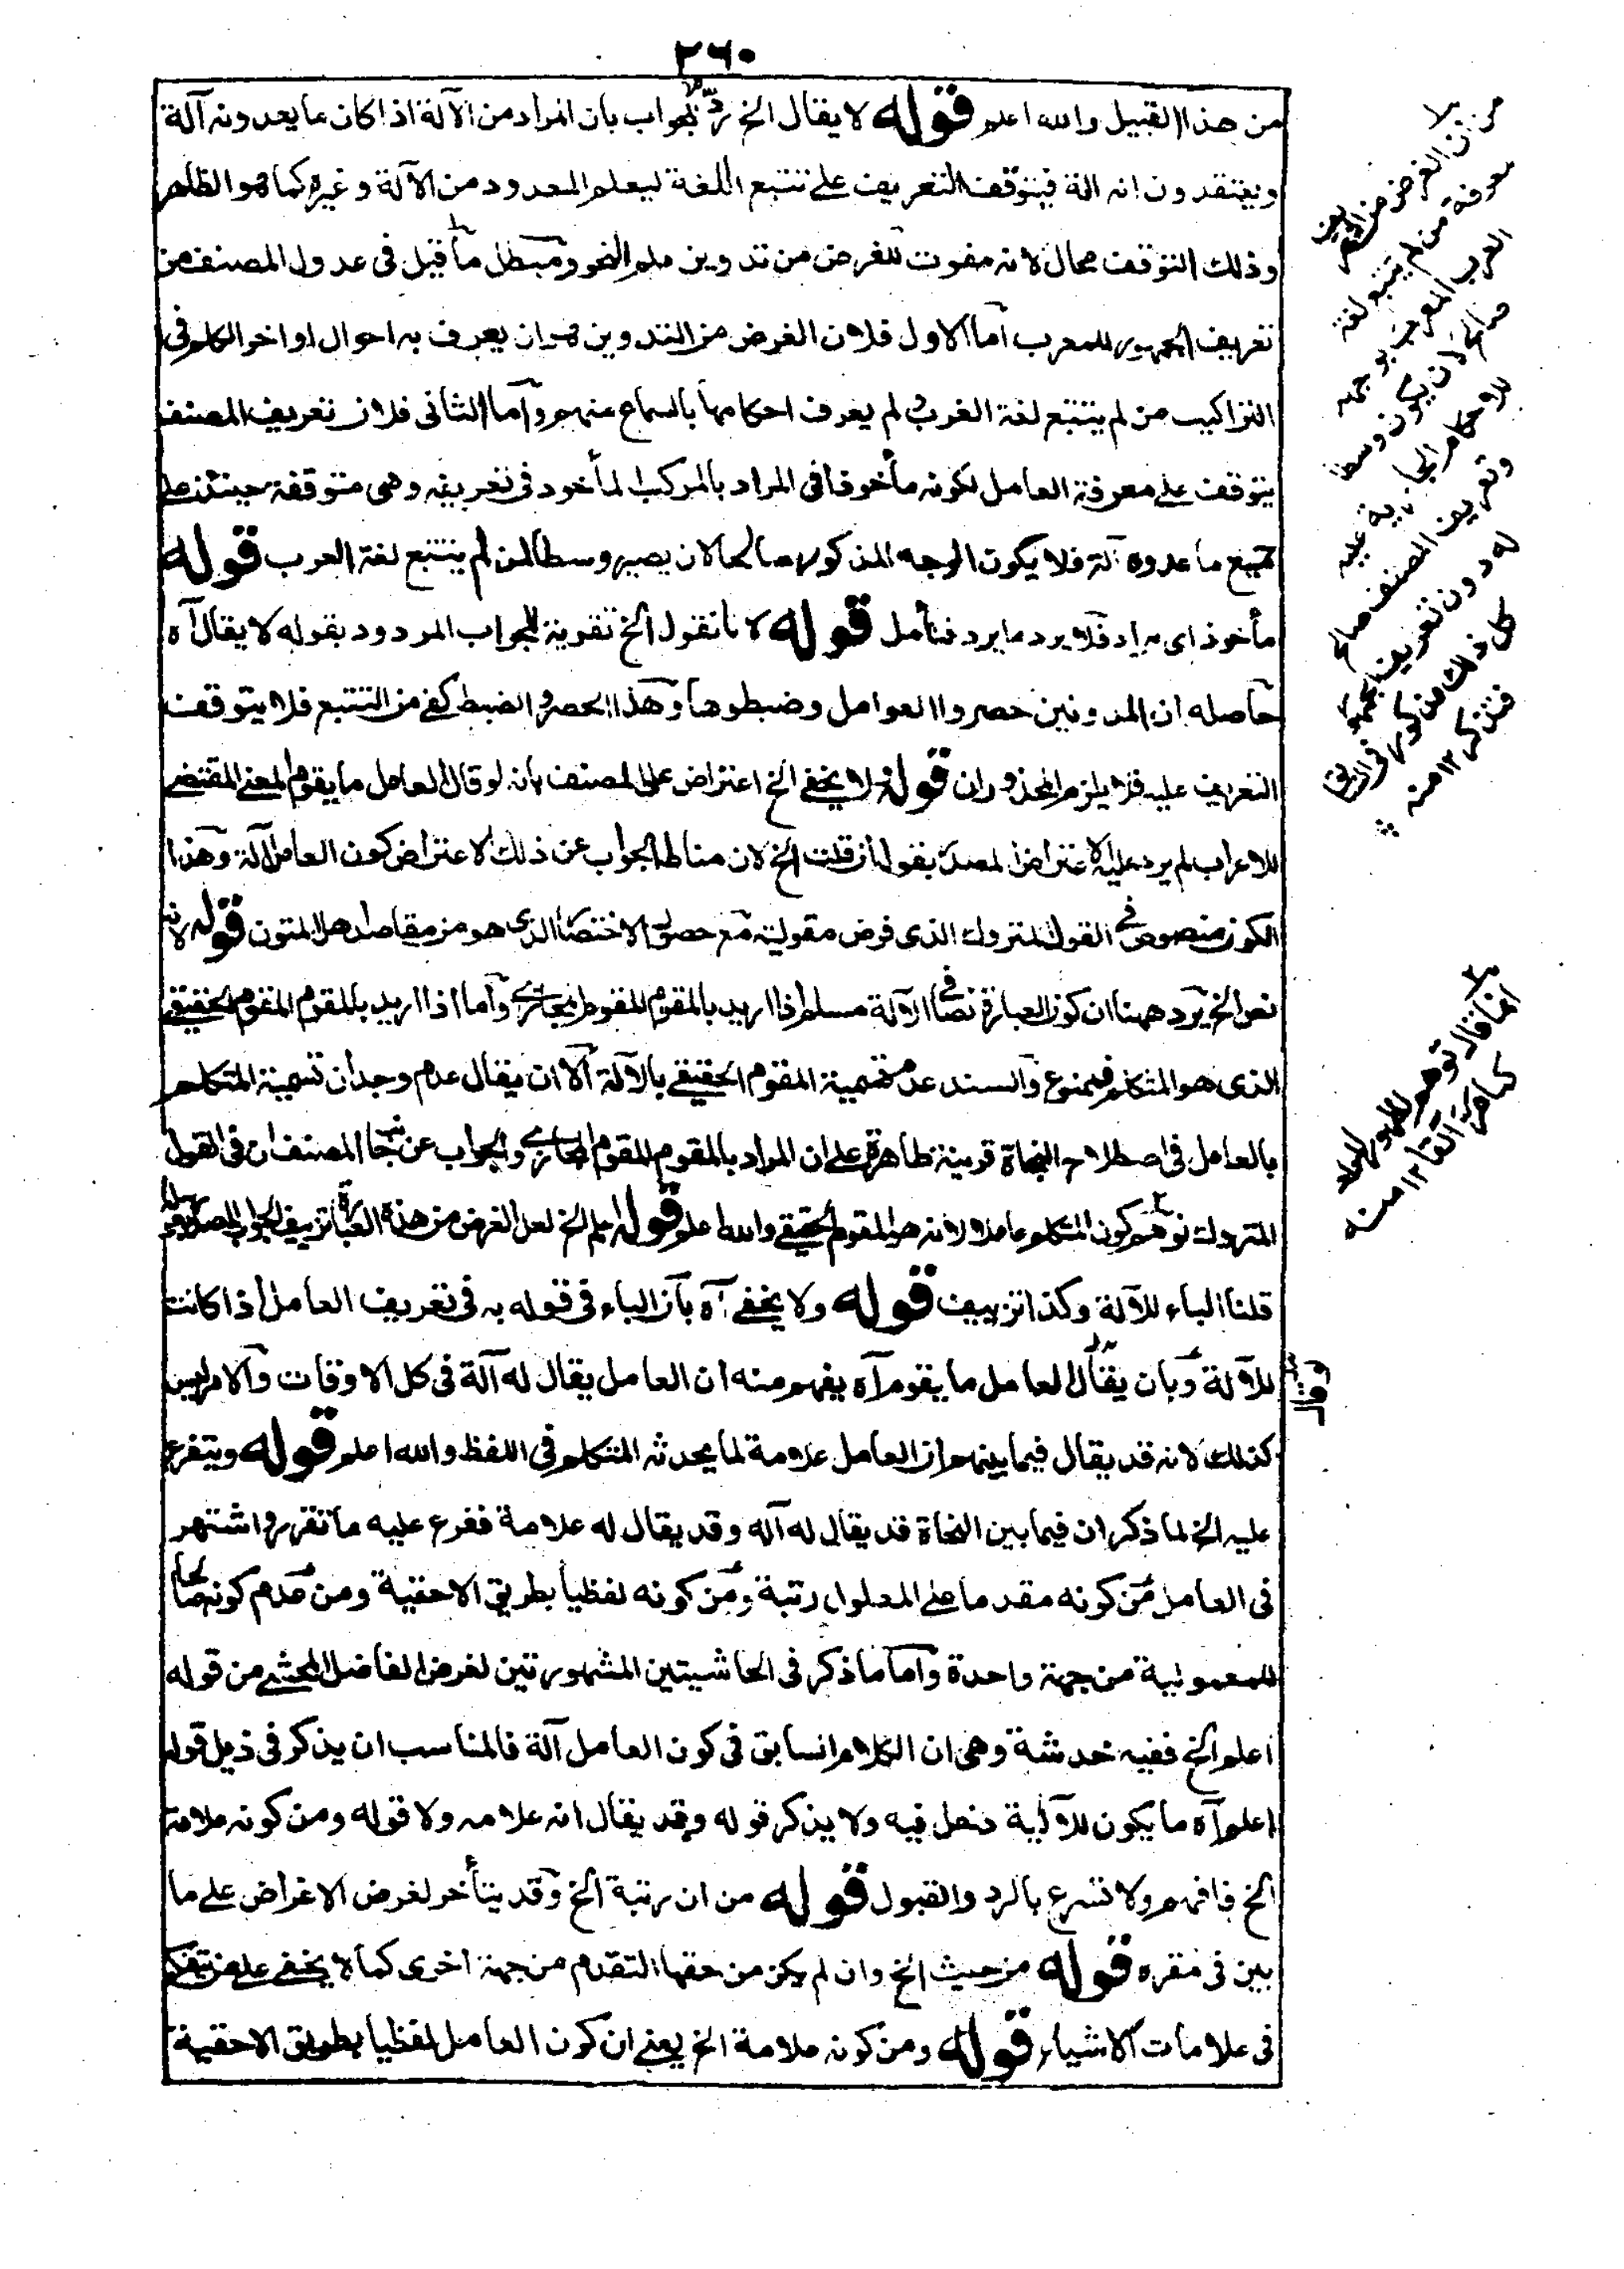 ٢٦٠
من هذا القبيل والله اعلم قوله لا يقال الخ رد للجواب بان المراد من الآلة اذا كان ما يعدونه آلة
ويعتقدون انه آلة فيتوقف التعريف على تتبع اللغة ليعلم المعدود من الآلة وغيره كما هو الظاهر
وذلك التوقف محال لانه مفوت للغرض من تدوين علم النحو ومبطل ما قيل في عدول المصنف من
تعريف الجمهور للمعرب أما الاول فلان الغرض من التدوين هو ان يعرف به احوال اواخر الكلم في
التراكيب من لم يتتبع لغة العرب لم يعرف احكامها بالسماع عنهم وأما الثاني فلان تعريف المصنف
يتوقف على معرفة العامل لكونه مأخوذا في المراد بالمركب المأخوذ في تعريفه وهى متوقفة حينئذ على
تتبع ما عدوه آلة فلا يكون الوجه المذكور صالحا لان يصير وسطا لمن لم يتتبع لغة العرب قوله
مأخوذ اى مراد فلا يرد ما يرد فتأمل قوله لانا نقول الخ تقوية للجواب المردود بقوله لا يقال آه
حاصله ان المدونين حصروا العوامل وضبطوها وهذا الحصر والضبط كفى من التتبع فلا يتوقف
التعريف عليه فلا يلزم المحذوران قوله ولا يخفى الخ اعتراض على المصنف بانه لو قال العامل ما يقوم المعنى المقتضى
للاعراب لم يرد عليه الاعتراض المصدر بقوله ان قلت الخ لان مناط الجواب عن ذلك الاعتراض كون العامل آلة وهذا
الكون منصوص في القول المتروك الذى فرض مقوليته مع حصول الاختصار الذى هو من مقاصد اهل المتون قوله لانه
نص الخ يرد ههنا ان كون العبارة نصا في الآلة مسلم اذا اريد بالمقوم المقوم المجازى وأما اذا اريد بالمقوم المقوم الحقيقى
الذى هو المتكلم فممنوع والسند عدم تسمية المقوم الحقيقى بالآلة الا ان يقال عدم وجدان تسمية المتكلم
بالعامل في اصطلاح النحاة قرينة ظاهرة على ان المراد بالمقوم المقوم المجازى والجواب عن جانب المصنف ان في القول
المتروك توهم كون المتكلم عاملا لانه هو المقوم الحقيقى والله اعلم قوله اعلم الخ لعل الغرض من هذه العبارة تزييف الجواب المصدر بقوله
قلنا الباء للآلة وكذا تزييف قوله ولا يخفى آه بأن الباء في قوله به في تعريف العامل اذا كانت
للآلة وبان يقال العامل ما يقوم آه يفهم منه ان العامل يقال له آلة في كل الاوقات والامر ليس
كذلك لانه قد يقال فيما بينهم ان العامل علامة لما يحدثه المتكلم في اللفظ والله اعلم قوله ويتفرع
عليه الخ لما ذكر ان فيما بين النحاة قد يقال له آلة وقد يقال له علامة ففرع عليه ما تقرر واشتهر
في العامل من كونه مقدما على المعلول رتبة ومن كونه لفظيا بطريق الاحقية ومن عدم كونه صالحا
للمعمولية من جهة واحدة وأما ما ذكر في الحاشيتين المشهورتين لغرض الفاضل المحشى من قوله
اعلم الخ ففيه خدشة وهى ان الكلام السابق في كون العامل آلة فالمناسب ان يذكر في ذيل قوله
اعلم آه ما يكون للآلية دخل فيه ولا يذكر قوله وقد يقال انه علامه ولا قوله ومن كونه علامة
الخ فافهم ولا تسرع بالرد والقبول قوله من ان رتبة الخ وقد يتأخر لغرض الاغراض على ما
بين في مقره قوله من حيث الخ وان لم يكن من حقها التقدم من جهة اخرى كما لا يخفى على من يتفكر
في علامات الاشياء قوله ومن كونه علامة الخ يعنى ان كون العامل لفظيا بطريق الاحقية
من ان الغرض من التدوين
معرفة من لم يتتبع لغة
العرب المعرب بوجه
صالح لان يكون وسطا
للاحكام الجارية عليه
وتعريف المصنف صالح
له دون تعريف الجمهور
كل ذلك مذكور في السابق
فتذكر ١٢ منه
انما قال توهم لظهور المراد
كما مر آنفا ١٢ منه